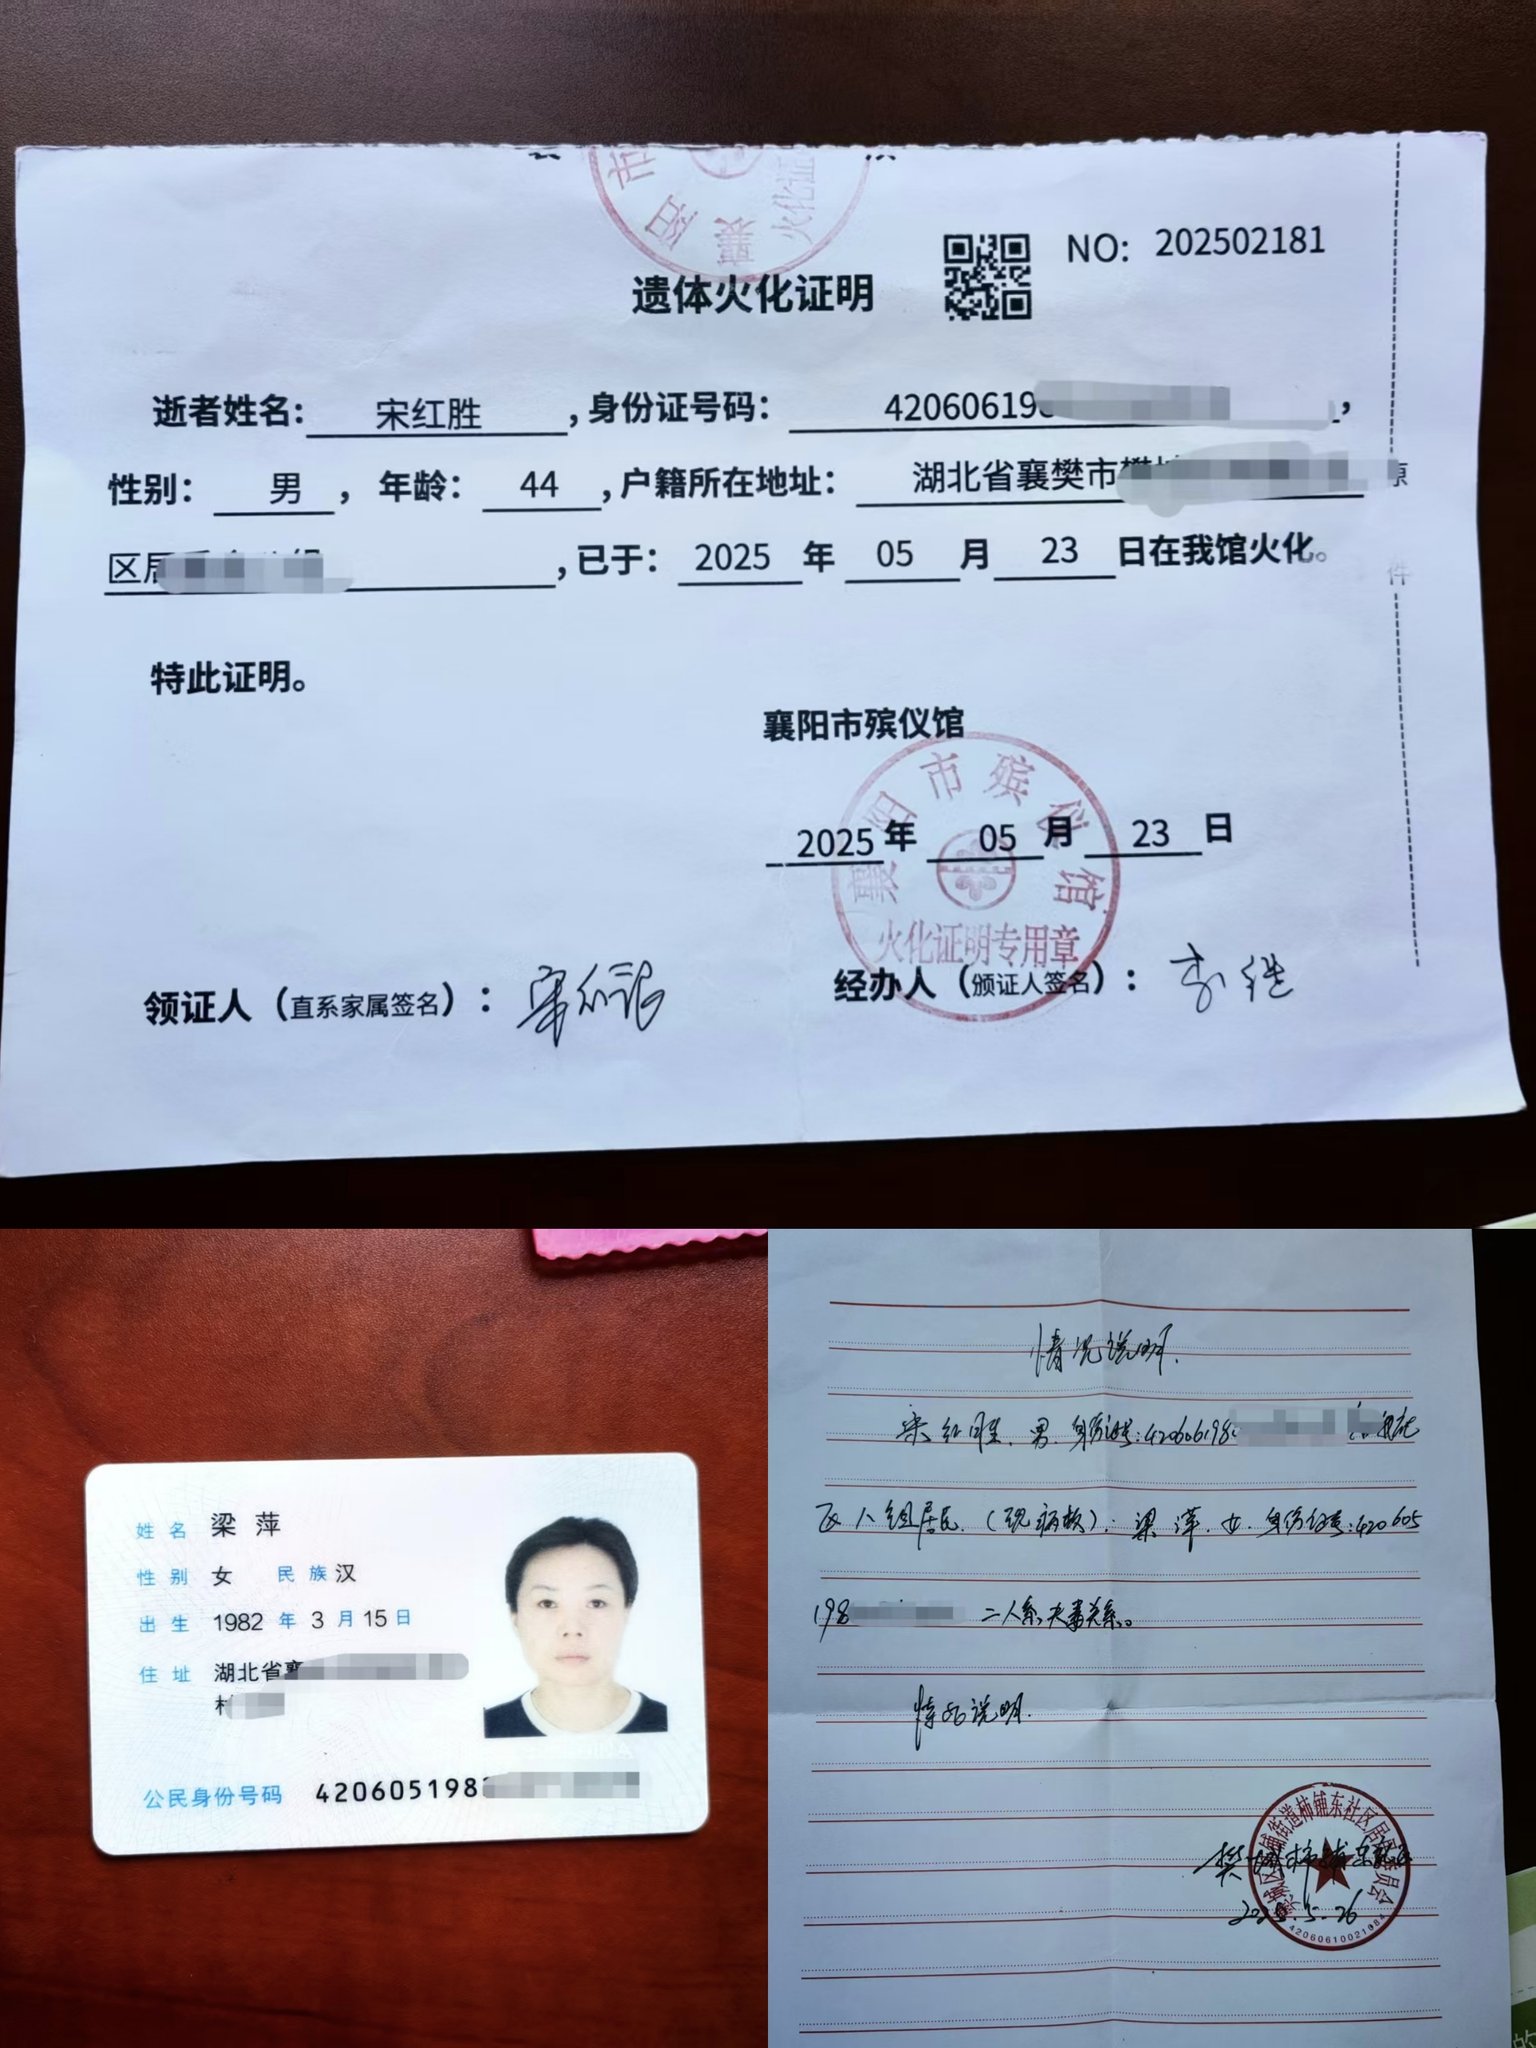 襄阳市
火化证
遗体火化证明
NO: 202502181
逝者姓名: 宋红胜 ,身份证号码: 42060619 ,
性别: 男 , 年龄: 44 ,户籍所在地址: 湖北省襄樊市樊
区居 ,已于: 2025 年 05 月 23 日在我馆火化。
件
特此证明。
襄阳市殡仪馆
襄阳市殡仪馆
2025年 05 月 23 日
火化证明专用章
领证人（直系家属签名）:
经办人（颁证人签名）:
姓名 梁萍
性别 女 民族 汉
出生 1982 年 3 月 15 日
住址 湖北省襄
村
公民身份号码 420605198
情况说明.
宋红胜、男、身份证号:420606198
区八组居民.(现病故); 梁萍.女.身份证号:420605
198 二人系夫妻关系。
特此说明.
街道柿铺东社区居民委员会
樊城柿铺东社区
2025.5.26
4206061002198